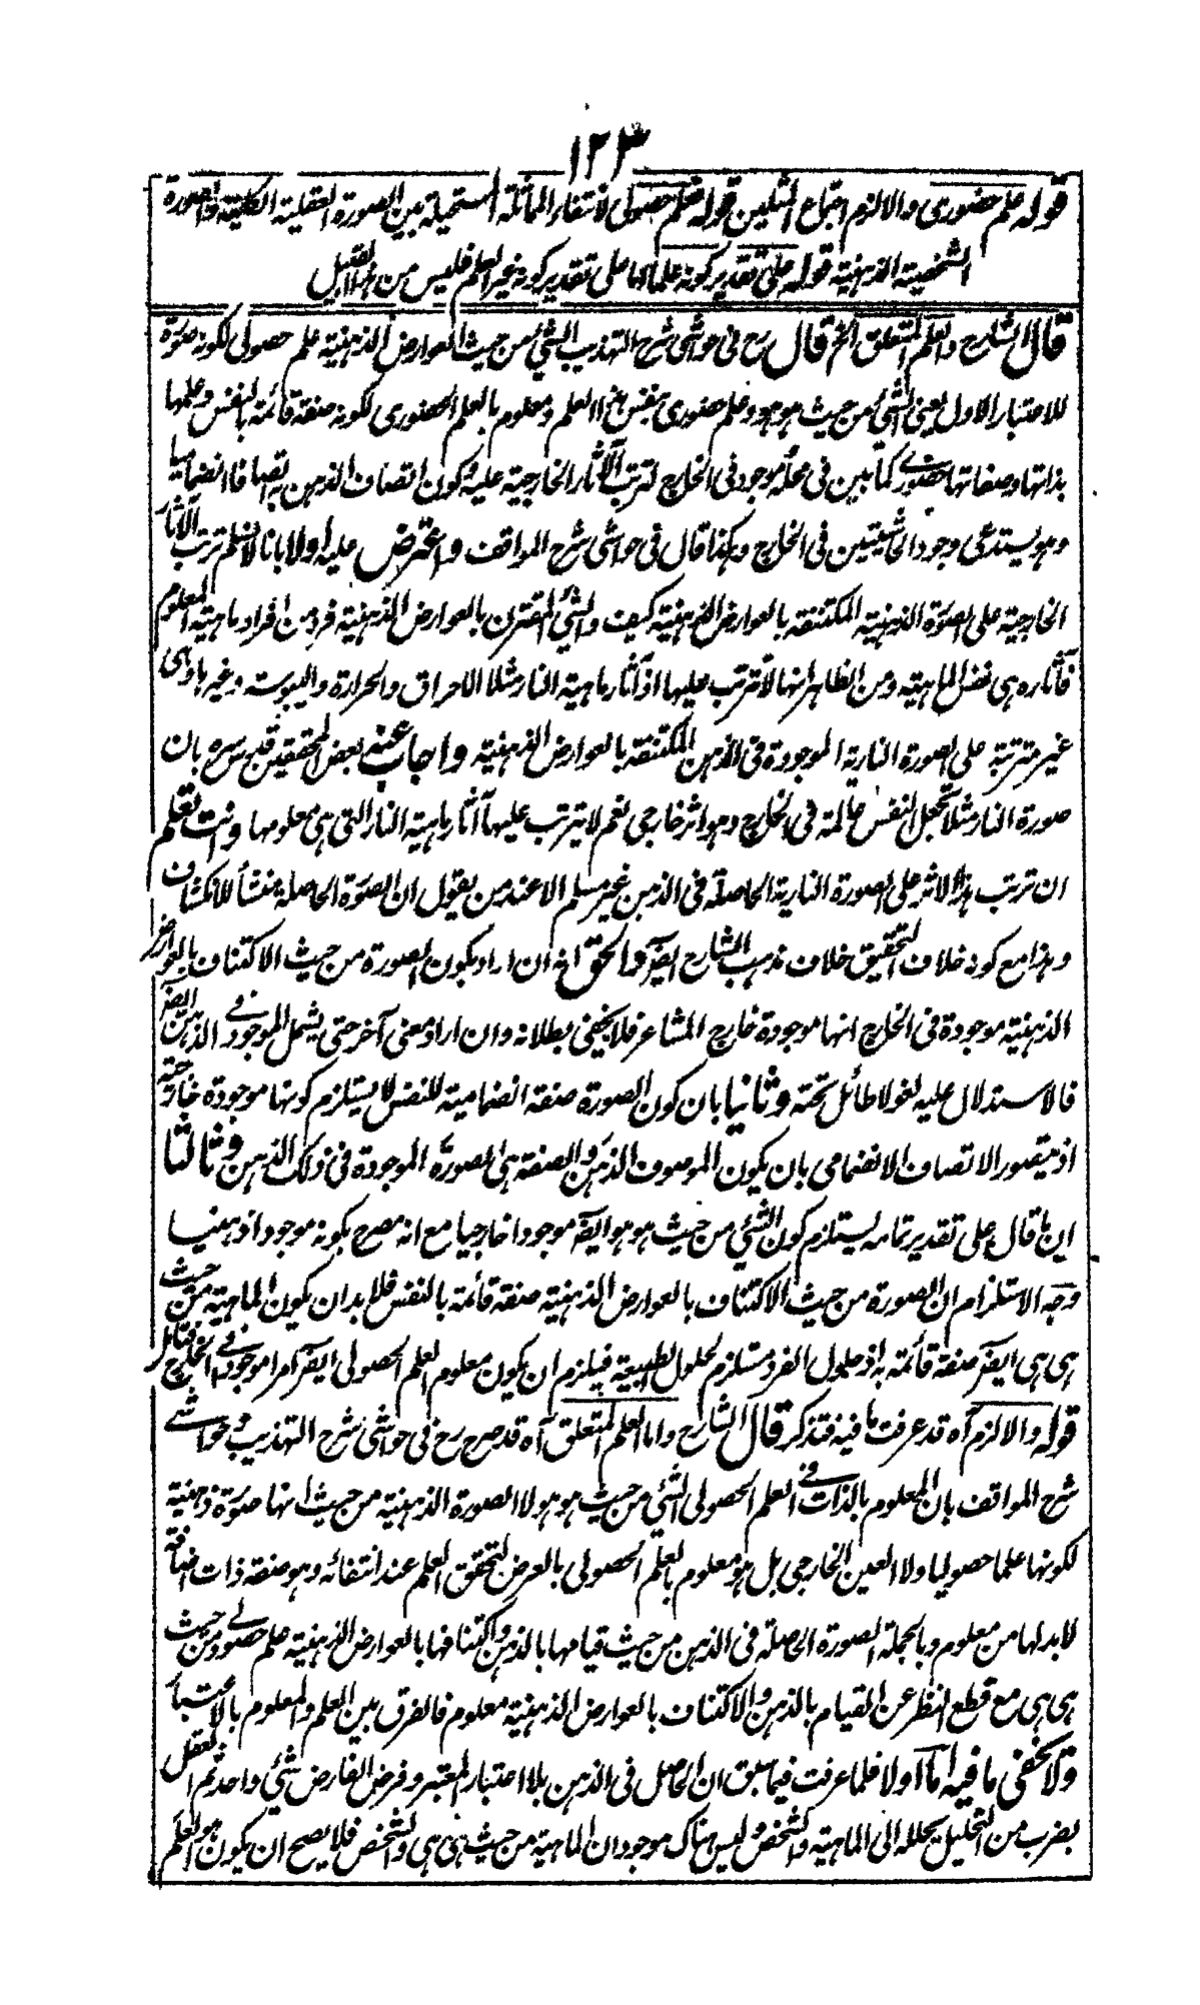 ١٢٣
قوله علم حضوري والا لزم اجتماع المثلين قوله علم حصولي لانتفاء المماثلة المستحيلة بين الصورة العقلية الكلية والصورة
الشخصية الذهنية قوله على تقدير كونه علما اما على تقدير كونه غير العلم فليس من هذا القبيل
قال الشارح والعلم المتعلق الخ قال رح في حواشي شرح التهذيب الشئ من حيث العوارض الذهنية علم حصولي لكونه صورة
للاعتبار الاول يعني الشئ من حيث هو هو وعلم حضوري بنفس هذا العلم ومعلوم بالعلم الحضوري لكونه صفة قائمة بالنفس وعلمها
بذاتها وصفاتها حضوري كما بين في محله موجود في الخارج لترتب الآثار الخارجية عليه وكون اتصاف الذهن به اتصافا انضماميا
وهو يستدعي وجود الحاشيتين في الخارج وهكذا قال في حواشي شرح المواقف واعترض عليه اولا بانا لا نسلم ترتب الآثار
الخارجية على الصورة الذهنية المكتنفة بالعوارض الذهنية كيف والشئ المقترن بالعوارض الذهنية فرد من افراد ماهية المعلوم
فآثاره هي نفس الماهية ومن الظاهر انها لا تترتب عليها اذ آثار ماهية النار مثلا الاحراق والحرارة واليبوسة وغيرها وهي
غير مترتبة على الصورة النارية الموجودة في الذهن المكتنفة بالعوارض الذهنية واجاب عنه بعض المحققين قدس سره بان
صورة النار مثلا تجعل النفس عالمة في الخارج وهو اثر خارجي نعم لا يترتب عليها آثار ماهية النار التي هي معلومها وانت تعلم
ان ترتب هذا الاثر على الصورة النارية الحاصلة في الذهن غير مسلم الا عند من يقول ان الصورة الحاصلة منشأ للانكشاف
وهذا مع كونه خلاف التحقيق خلاف مذهب الشارح ايضا والحق انه ان اراد بكون الصورة من حيث الاكتناف بالعوارض
الذهنية موجودة في الخارج انها موجودة خارج المشاعر فلا يخفى بطلانه وان اراد معنى آخر حتى يشمل الموجود في الذهن ايضا
فالاستدلال عليه لغو لا طائل تحته وثانيا بان كون الصورة صفة انضمامية للنفس لا يستلزم كونها موجودة خارجية
اذ يتصور الاتصاف الانضمامي بان يكون الموصوف الذهن والصفة هي الصورة الموجودة في ذلك الذهن وثالثا
ان ما قال على تقدير تمامه يستلزم كون الشئ من حيث هو هو ايضا موجودا خارجيا مع انه مصرح بكونه موجودا ذهنيا
وجه الاستلزام ان الصورة من حيث الاكتناف بالعوارض الذهنية صفة قائمة بالنفس فلا بد ان يكون الماهية من حيث
هي هي ايضا صفة قائمة به اذ حلول الفرد مستلزم لحلول الطبيعة فيلزم ان يكون معلوم العلم الحصولي ايضا امرا موجودا في الخارج فتأمل
قوله والا لزم آه قد عرفت ما فيه فتذكر قال الشارح واما العلم المتعلق آه قد صرح رح في حواشي شرح التهذيب وحواشي
شرح المواقف بان المعلوم بالذات في العلم الحصولي الشئ من حيث هو هو لا الصورة الذهنية من حيث انها صورة ذهنية
لكونها علما حصوليا ولا العين الخارجي بل هو معلوم بالعلم الحصولي بالعرض لتحقق العلم عند انتفائه وهو صفة ذات اضافة
لا بد لها من معلوم وبالجملة الصورة الحاصلة في الذهن من حيث قيامها بالذهن واكتنافها بالعوارض الذهنية علم حصولي ومن حيث
هي هي مع قطع النظر عن القيام بالذهن والاكتناف بالعوارض الذهنية معلوم فالفرق بين العلم والمعلوم بالاعتبار
ولا يخفى ما فيه اما اولا فلما عرفت فيما سبق ان الحاصل في الذهن بلا اعتبار المعتبر وفرض الفارض شئ واحد ثم العقل
بضرب من التحليل يحلله الى الماهية والتشخص وليس هناك موجودان الماهية من حيث هي هي والتشخص فلا يصح ان يكون هو العلم